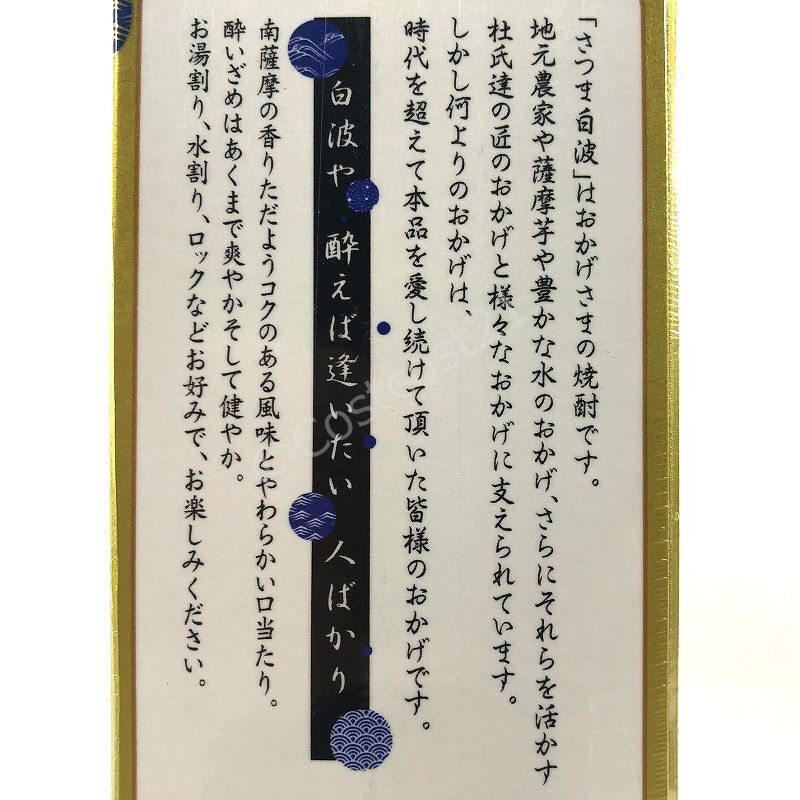 「さつま白波」はおかげさまの焼酎です。
地元農家や薩摩芋や豊かな水のおかげ、さらにそれらを活かす
杜氏達の匠のおかげと様々なおかげに支えられています。
しかし何よりのおかげは、
時代を超えて本品を愛し続けて頂いた皆様のおかげです。
白波や 酔えば逢いたい 人ばかり
南薩摩の香りただようコクのある風味とやわらかい口当たり。
酔いざめはあくまで爽やかそして健やか。
お湯割り、水割り、ロックなどお好みで、お楽しみください。